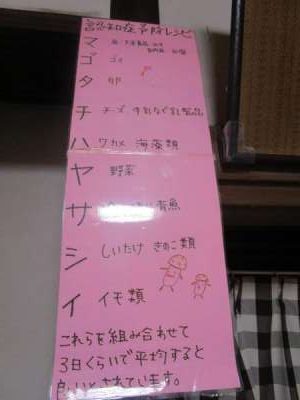 認知症予防レシピ
マ 豆 大豆
ゴ ゴマ
タ 卵
チ チーズ、牛乳など乳製品
ハ ワカメ 海藻類
ヤ 野菜
サ 青魚
シ しいたけ きのこ類
イ イモ類
これらを組み合わせて
3日くらいで平均すると
良いとされています。